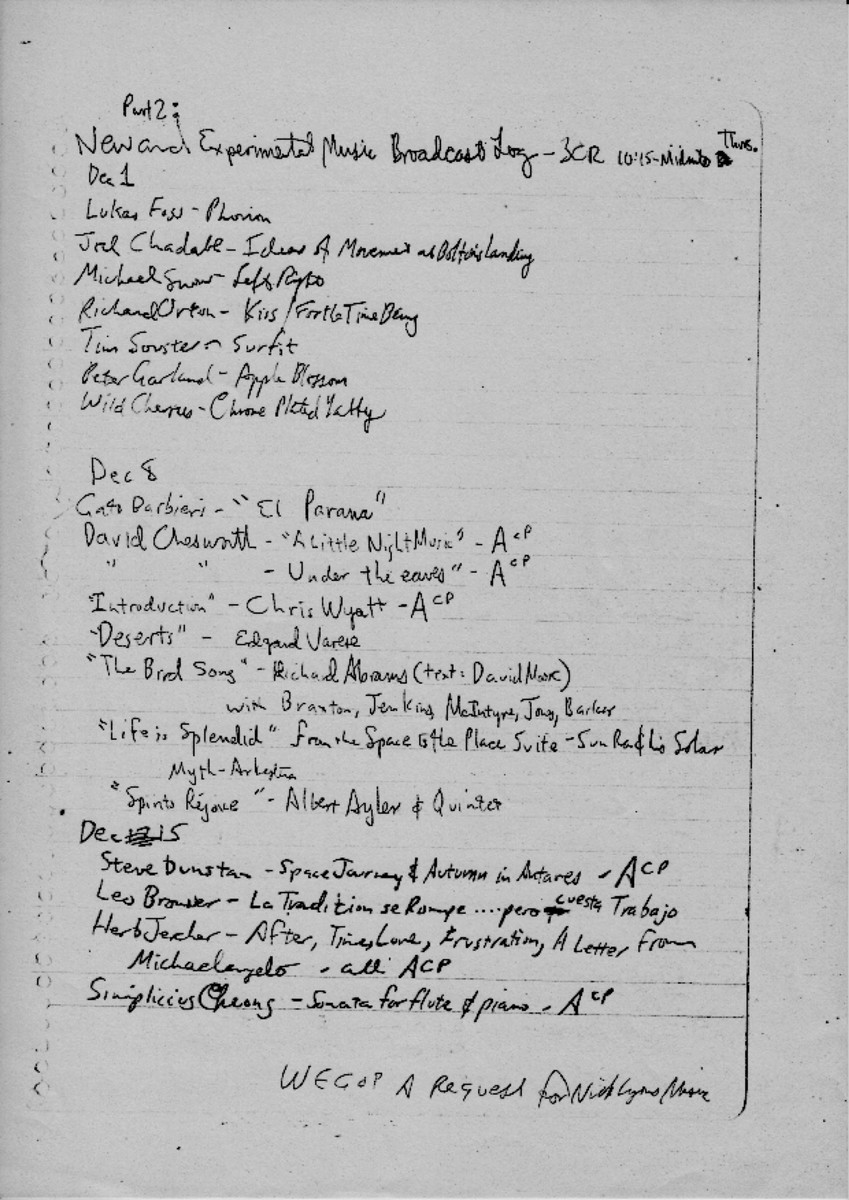 Part 2:
New and Experimental Music Broadcast Log - 3CR 10:15-Midnite Thurs.
Dec 1
Lukas Foss - Phorion
Joel Chadabe - Ideas of Movement at Bolton Landing
Michael Snow - Left Right
Richard Orton - Kiss / For the Time Being
Tim Souster - Surfit
Peter Garland - Apple Blossom
Wild Cherries - Chrome Plated Yabby
Dec 8
Gato Barbieri - "El Parana"
David Chesworth - "A Little Night Music" - ACP
" " - Under the eaves" - ACP
"Introduction" - Chris Wyatt - ACP
"Deserts" - Edgard Varese
"The Bird Song" - Richard Abrams (text: David Moore)
with Braxton, Jenkins, McIntyre, Jones, Barker
"Life is Splendid" from the Space is the Place Suite - Sun Ra & his Solar
Myth-Arkestra
"Spirits Rejoice" - Albert Ayler & Quintet
Dec 15
Steve Dunstan - Space Journey & Autumn in Antares - ACP
Leo Brouwer - La Tradition se Rompe .... pero cuesta Trabajo
Herb Jercher - After, Times, Love, Frustration, A Letter From
Michaelangelo - all ACP
Simplicius Cheong - Sonata for flute & piano - ACP
WE GOT A Request for Nick Lyons Music